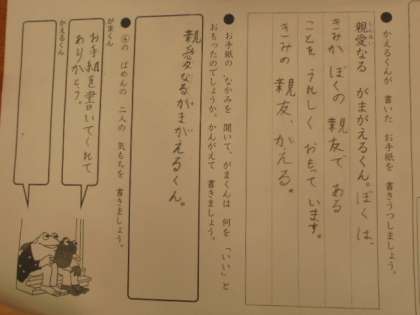 ●かえるくんが 書いた お手紙を 書きうつしましょう。
親愛なる がまがえるくん。ぼくは、
きみが ぼくの 親友で ある
ことを うれしく おもって います。
きみの 親友、かえる。
●お手紙の なかみを 聞いて、がまくんは 何を 「いい」と
おもったのでしょうか。かんがえて 書きましょう。
親愛なるがまがえるくん。
●④の ばめんの 二人の 気もちを 書きましょう。
がまくん
お手紙を書いてくれて
ありがとう。
かえるくん